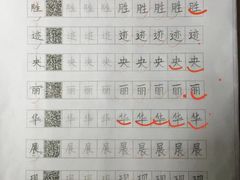 胜 胜 胜 胜 胜 胜 胜
迹 迹 迹 迹 迹 迹 迹
央 央 央 央 央 央 央
丽 丽 丽 丽 丽 丽 丽
华 华 华 华 华 华 华
展 展 展 展 展 展 展